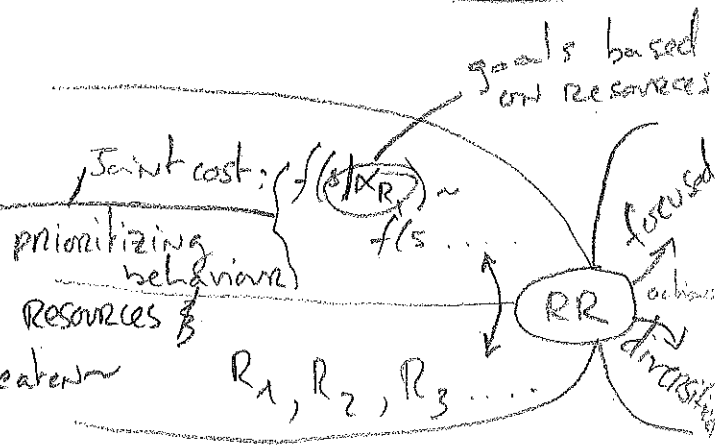 goals based
on resources
Joint cost: f(s|α_R) ~
f(s .....
prioritizing
behaviour
Resources &
RR
focused
actions
R1, R2, R3 ....